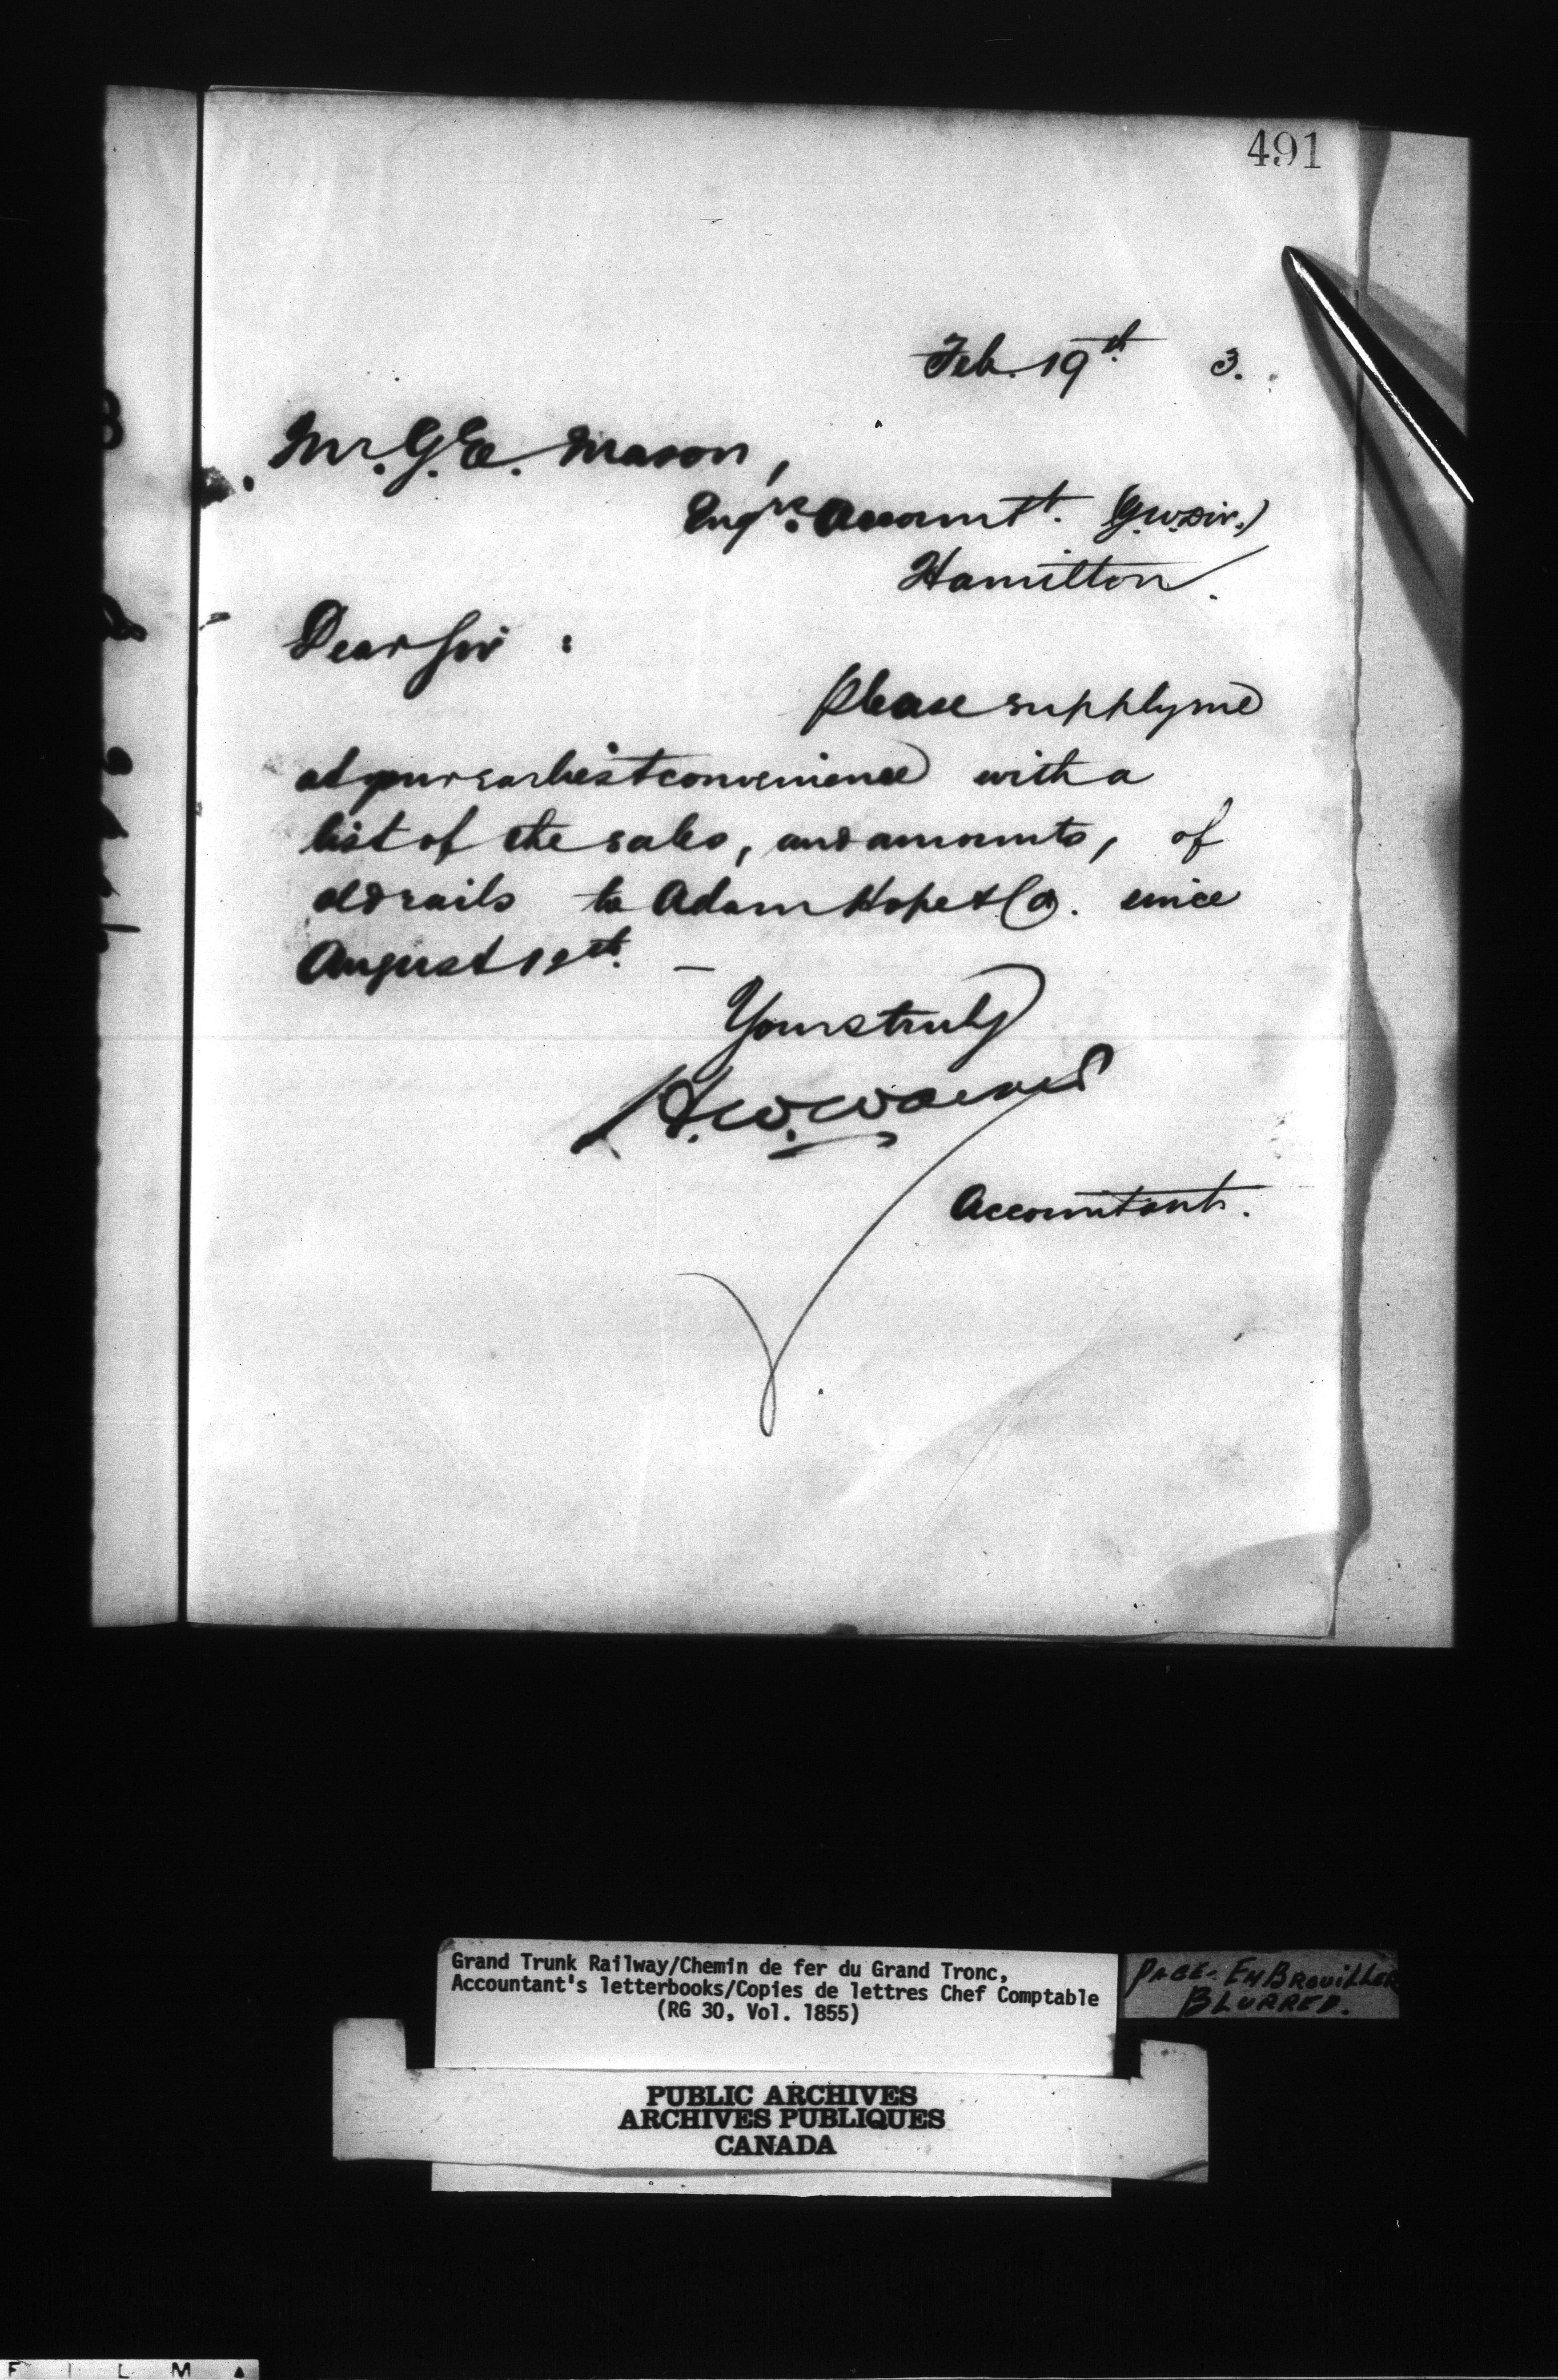 491
Feb. 19th 3.
Mr. G. E. Mason,
Engrs. Accountt. (G.W. Div.)
Hamilton.
Dear Sir :
Please supply me
at your earliest convenience with a
list of the sales, and amounts, of
old rails to Adam Hope & Co. since
August 12th. —
Yours truly
H. W. Walker
Accountant.
Grand Trunk Railway/Chemin de fer du Grand Tronc,
Accountant's letterbooks/Copies de lettres Chef Comptable
(RG 30, Vol. 1855)
PAGE. EMBROUILLER
BLURRED.
PUBLIC ARCHIVES
ARCHIVES PUBLIQUES
CANADA
F I L M